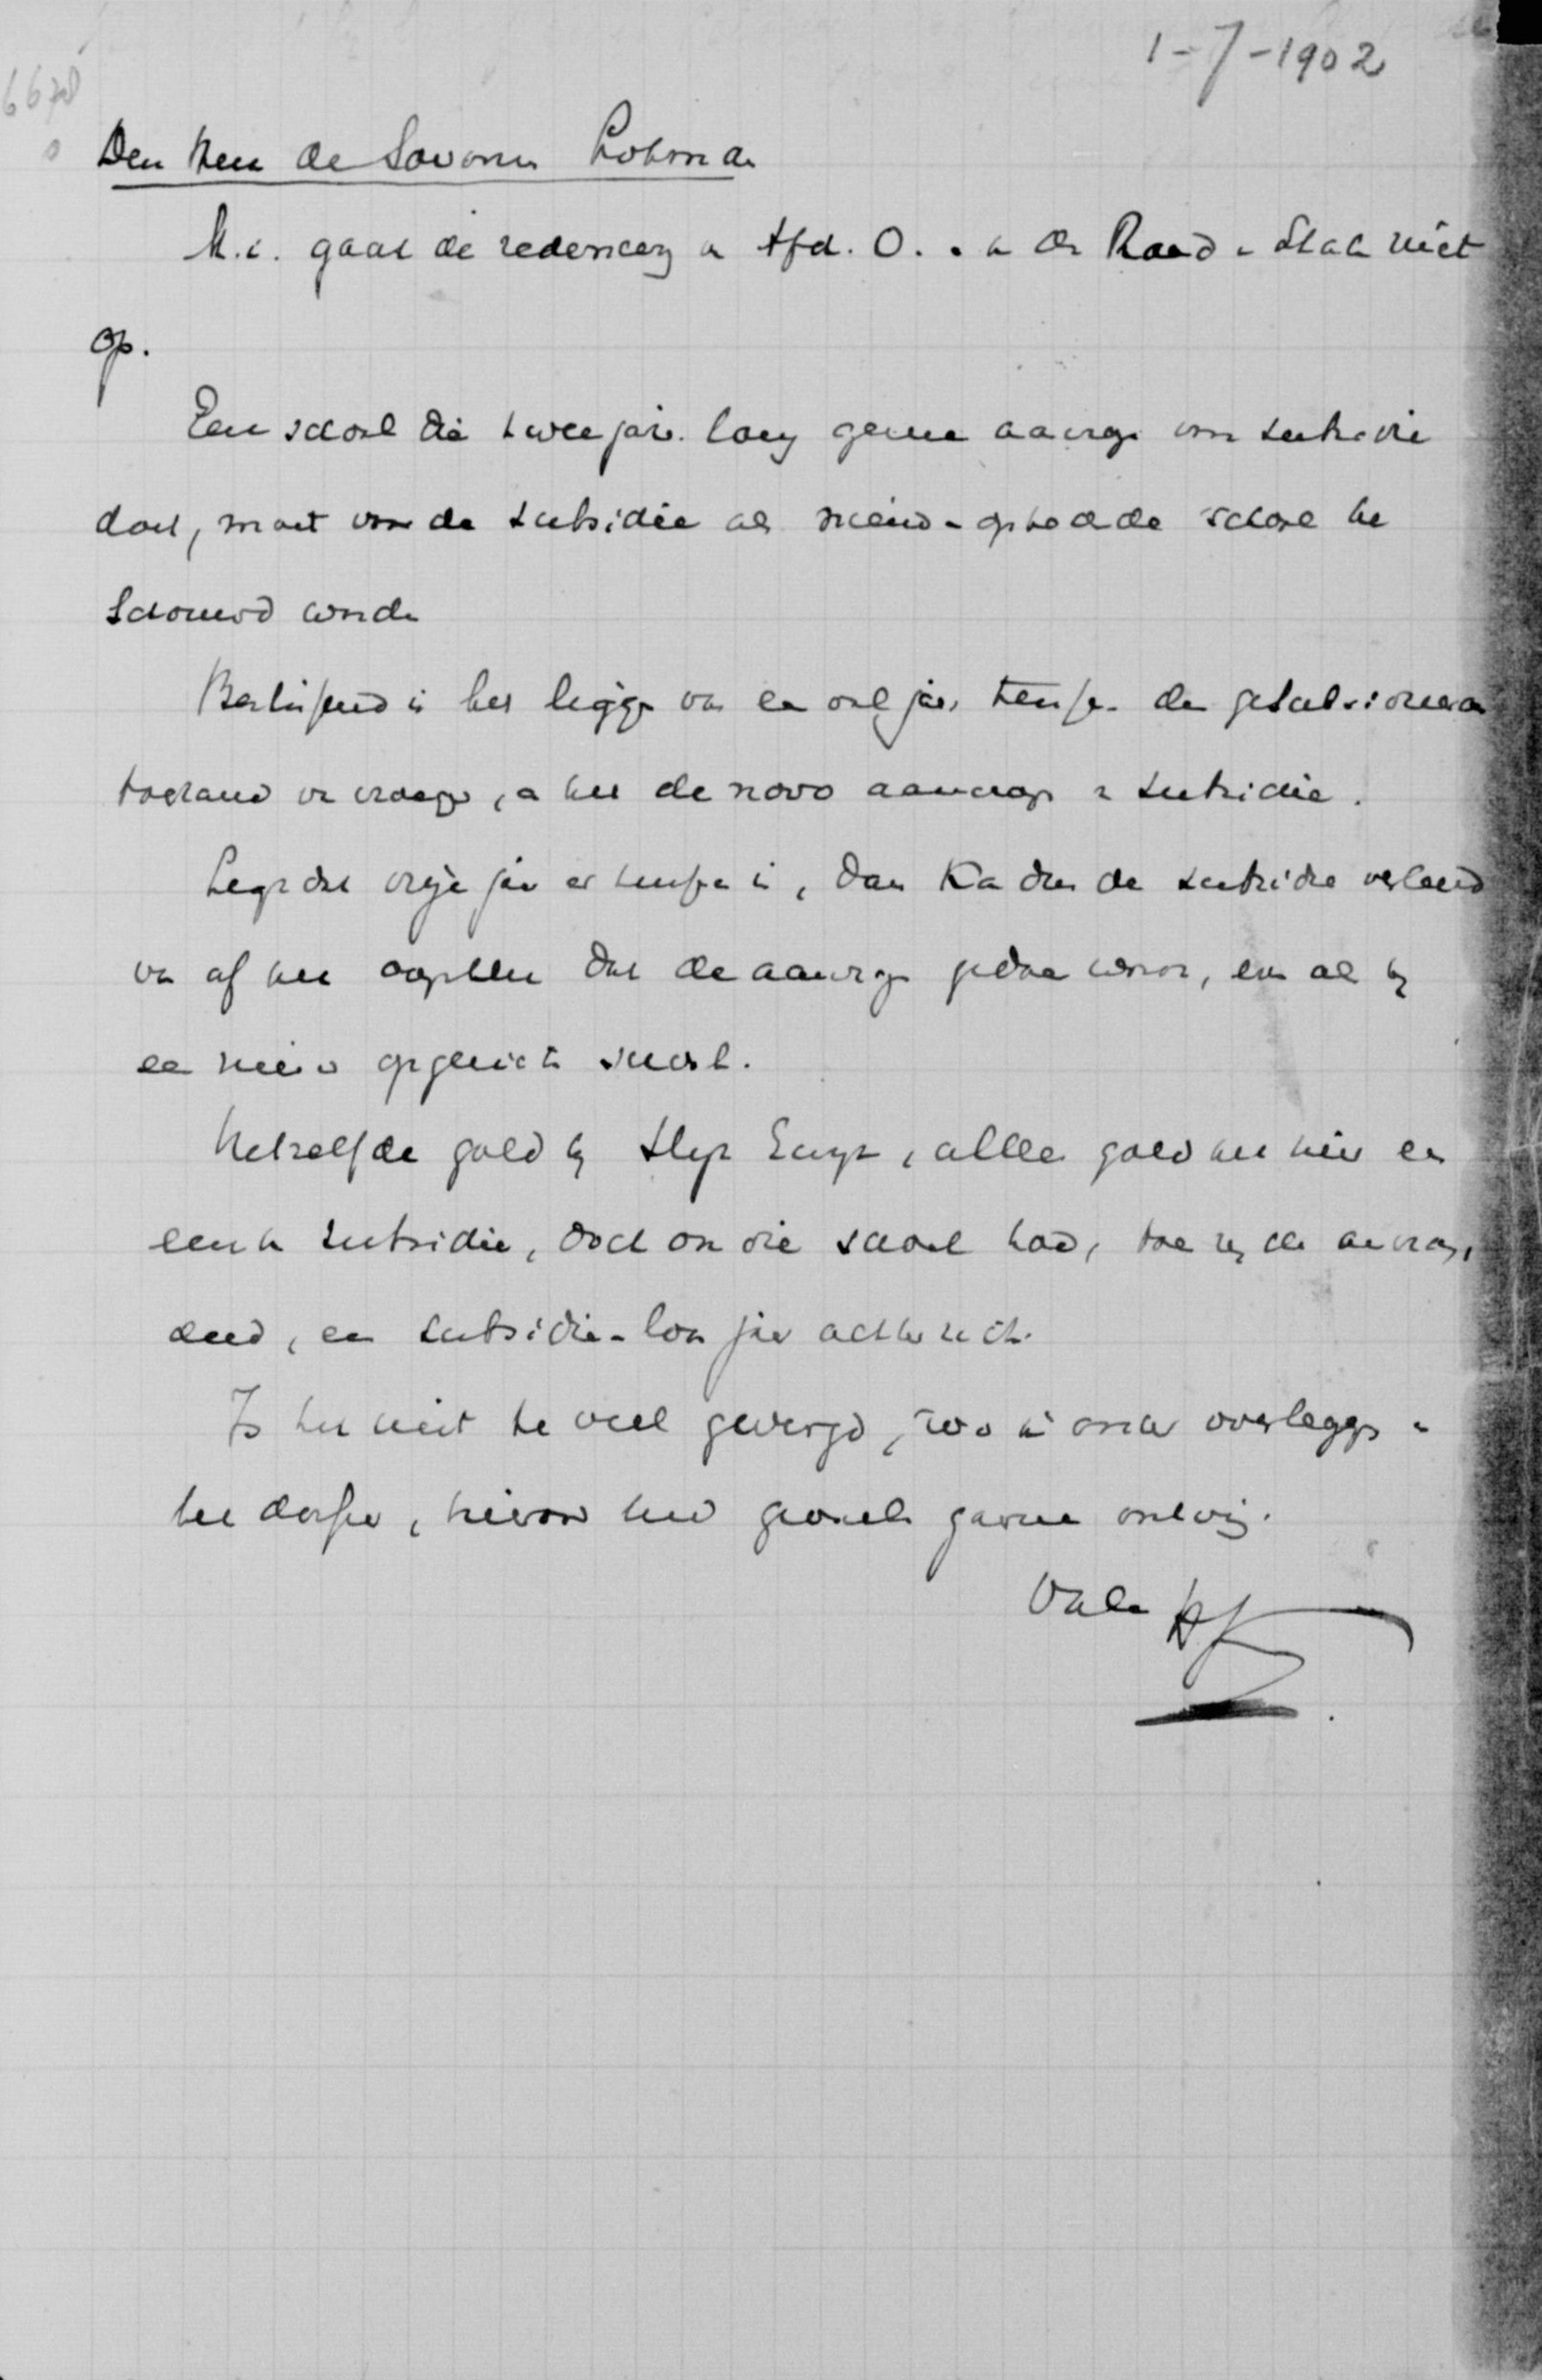 1-7-1902
6678
Den Heer de Savornin Lohman
M.i. gaat de redeneering v. Afd. O. en v. den Raad v. State niet
op.
Een school die twee jaren lang geene aanvrage voor subsidie
doet, moet voor de subsidie als nieuw-optredende school be
schouwd worden
Beslissend is het liggen van een vol jaar tusschen den gesubsidieerden
toestand van vroeger, en het de novo aanvragen v. subsidie.
Ligt dat vrije jaar er tusschen in, dan kan dus de subsidie verleend
van af het oogenblik dat de aanvrage gedaan werd, even als bij
een nieuw opgerichte school.
Hetzelfde gold bij , alleen gold het hier een
eerste subsidie, doch ook die school had, toen zij de aanvrage
deed, een subsidie-loos jaar achter zich.
Is het niet te veel gevergd, zoo in onder overlegging v.
het dossier, hierover uw gevoelen gaarne ontving.
Vale